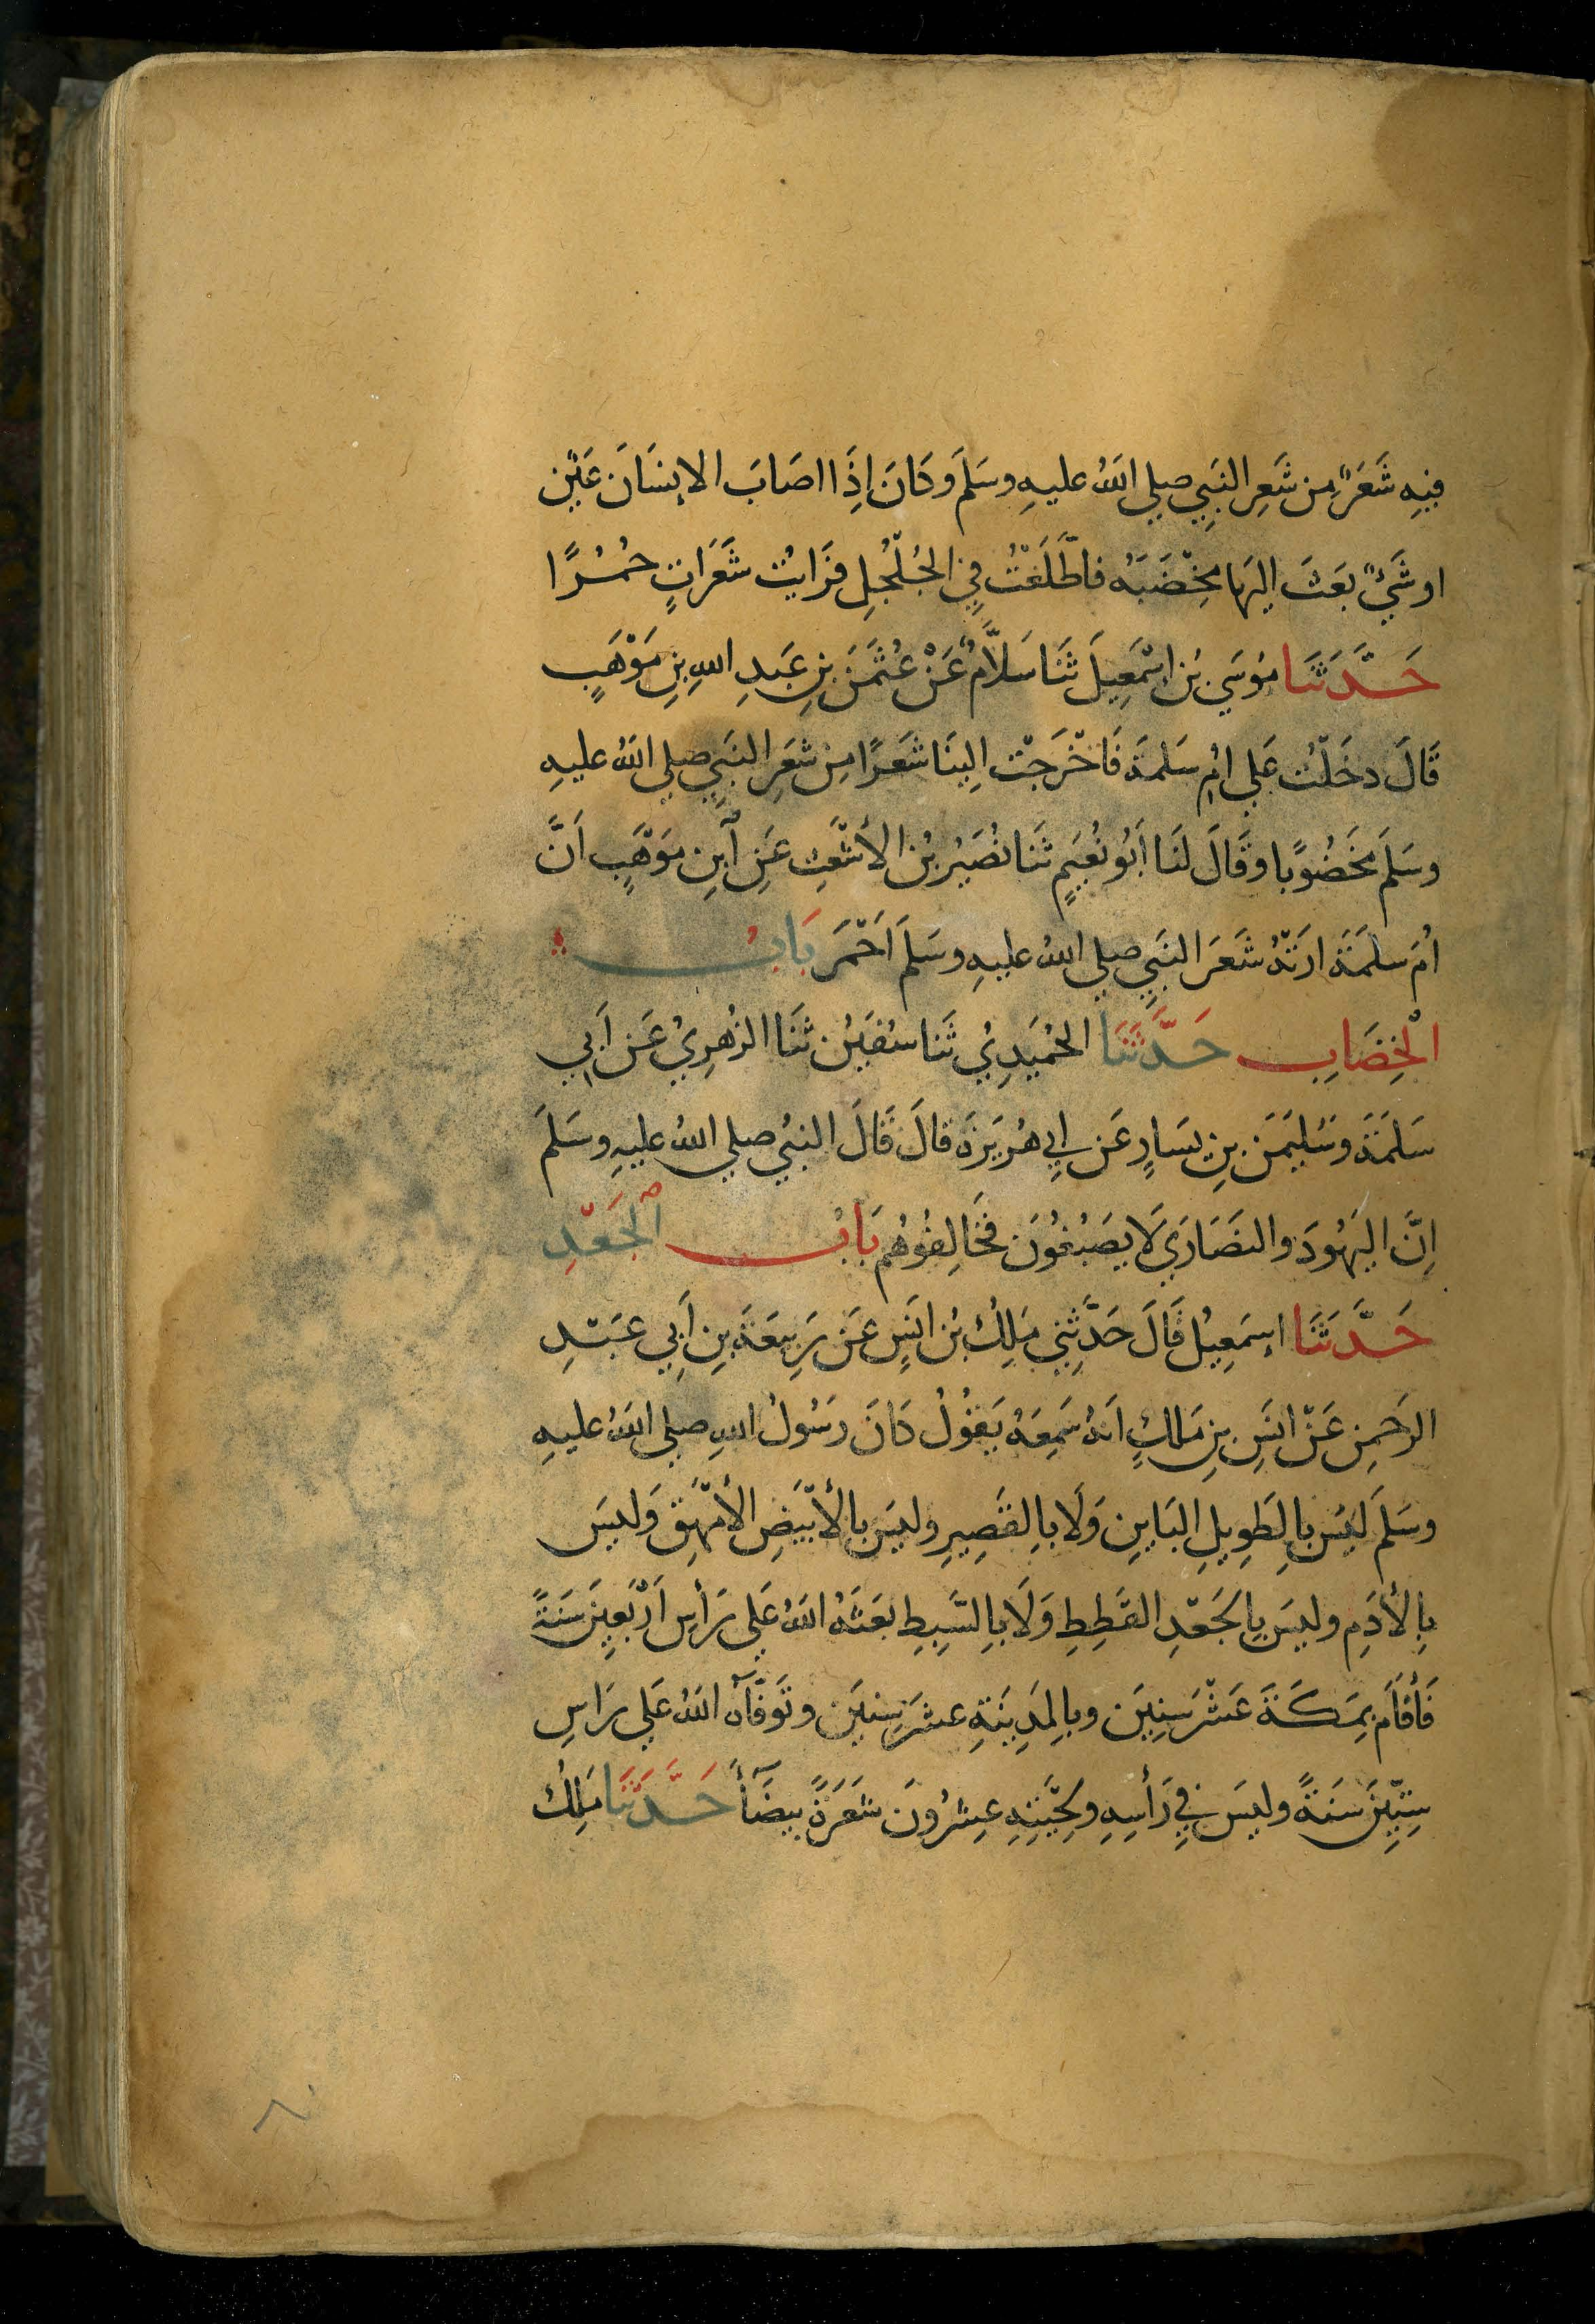 فِيهِ شَعَرٌ مِن شَعِرِ النَبِيِ صلي اللهُ عليهِ وسَلَمَ وَكَانَ إِذَا اصَابَ الاِنسَانَ عَيْن
اوشَيْءٌ بَعَثَ الِيهَا مِخْضَبَهُ فاطَّلَعْتُ فِي الجُلْجُلِ فرَايْت شَعَرَاتٍ حُمُرًا
حَدَّثَنَا مُوسَي بْن اسْمَعِيلَ ثَنَا سَلَّامٌ عَنْ عُثْمَنَ بنِ عَبدِ اللهِ بنِ مَوْهَبٍ
قَالَ دخَلْتُ عَلي امِ سَلمةَ فَاخْرَجَتْ الِينَا شَعَرًا مِن شَعَرِ النبَيِ صلي اللهُ عليهِ
وسَلمَ مَخَضُوبًا وقَالَ لنَا أَبُو نُعَيمٍ ثَنَا نُصَيْرُ بْن الأَشْعَثِ عَنِ ابنِ مَوْهَبٍ اَنَّ
اُمَ سلمَةَ ارَتْهُ شَعَرَ النبَيِ صلي اللهُ عليهِ وسَلمَ اَحْمَرَ بَابُ
الْخِضَابِ حَدَّثَنَا الحُمَيَدِيُ ثَنَا سُفيَن ثَنَا الزُهرِيُ عَن اَبِي
سَلمَةَ وسُليمَنَ بنِ يسَارٍ عَن ابِي هُرَيرَةَ قالَ قَالَ النبُي صلي اللهُ عليهِ وسَلمَ
اِنَّ اليَهُودَ والنصَارَي لَا يصَبُغُونَ فخَالِفُوهُم بَابُ الْجَعْدِ
حَدَّثَنَا اِسمَعِيلُ قَالَ حَدَّثِنِي مَلِكُ بْن انَسٍ عَن رَبِيعَةَ بنِ اَبِي عَبْدِ
الرَحمنِ عَنْ انَسِ بنِ مَلكٍ انهُ سَمِعَهُ يَقُولُ كَانَ رسَولُ اللهِ صلي اللهُ عليهِ
وسَلمَ ليَس بالِطَوِيلِ البَاينِ وَلَا بالِقصِيرِ وليسَ بالأَبْيَضِ الأَمْهَقِ وَليسَ
بِالأدَمِ وليسَ بِالجَعْدِ القَطِطِ وَلَا بالِسَّبِطِ بعَثهُ اللهُ عَلي رَأسِ اَرْبَعِينَ سَنةً
فَأَقَامَ بِمَكَةَ عَشْرَ سِنِينَ وبالِمَدِينَةِ عشرَ سِنينَ وتَوَفَّآهُ اللهُ عَلي رَاسِ
سِتِّينَ سَنةً وليسَ فِي رَأسِهِ ولِحْيَتِهِ عِشرُونَ شَعَرَةً بيضَآءَ حَدَّثَنَا مَلِكُ
٨٠